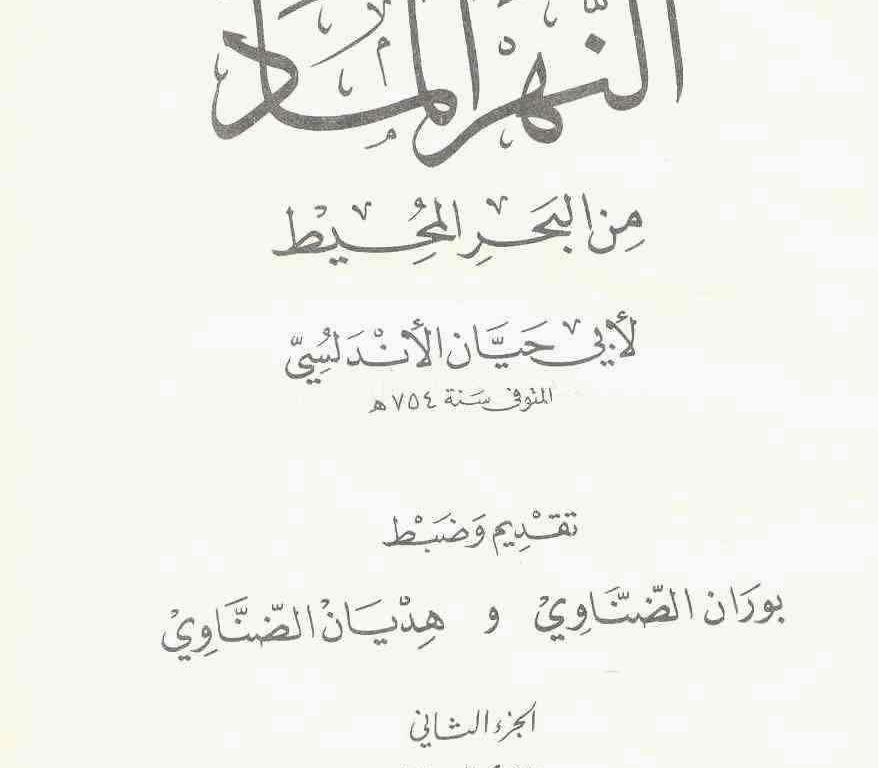 النَّهرُ المَادّ
مِنَ البَحْرِ المُحِيْط
لأَبي حَيَّان الأَنْدَلُسِيّ
المتوفى سَنة ٧٥٤ هـ
تَقْدِيم وَضَبْط
بورَان الضَّنَّاوِيْ و هِدْيَان الضَّنَّاوِيْ
الجزء الثاني